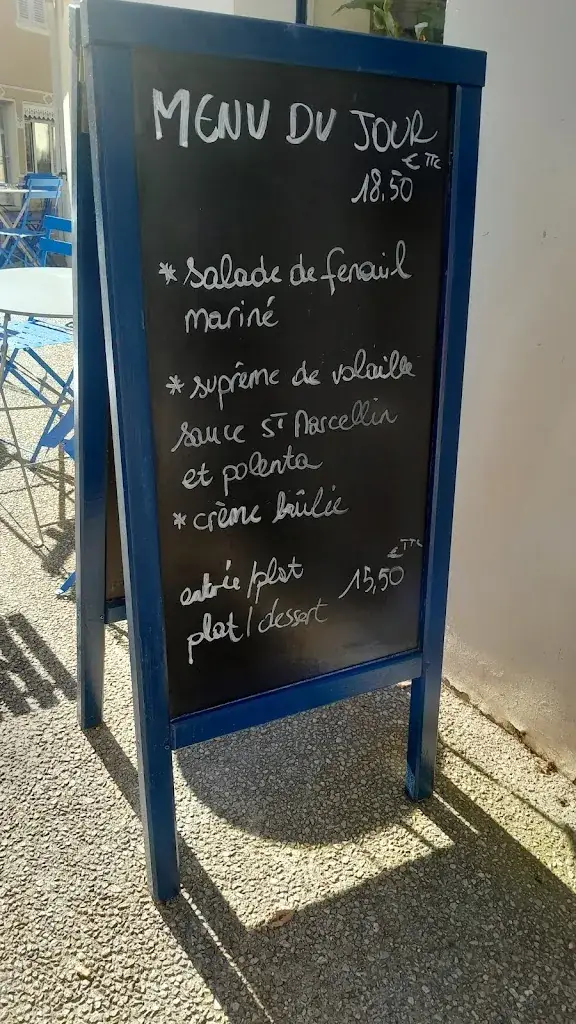 MENU DU JOUR
€ TTC
18.50
* salade de fenouil
mariné
* suprême de volaille
sauce St Marcellin
et polenta
* crème brûlée
entrée/plat
plat/dessert
€ TTC
15,50